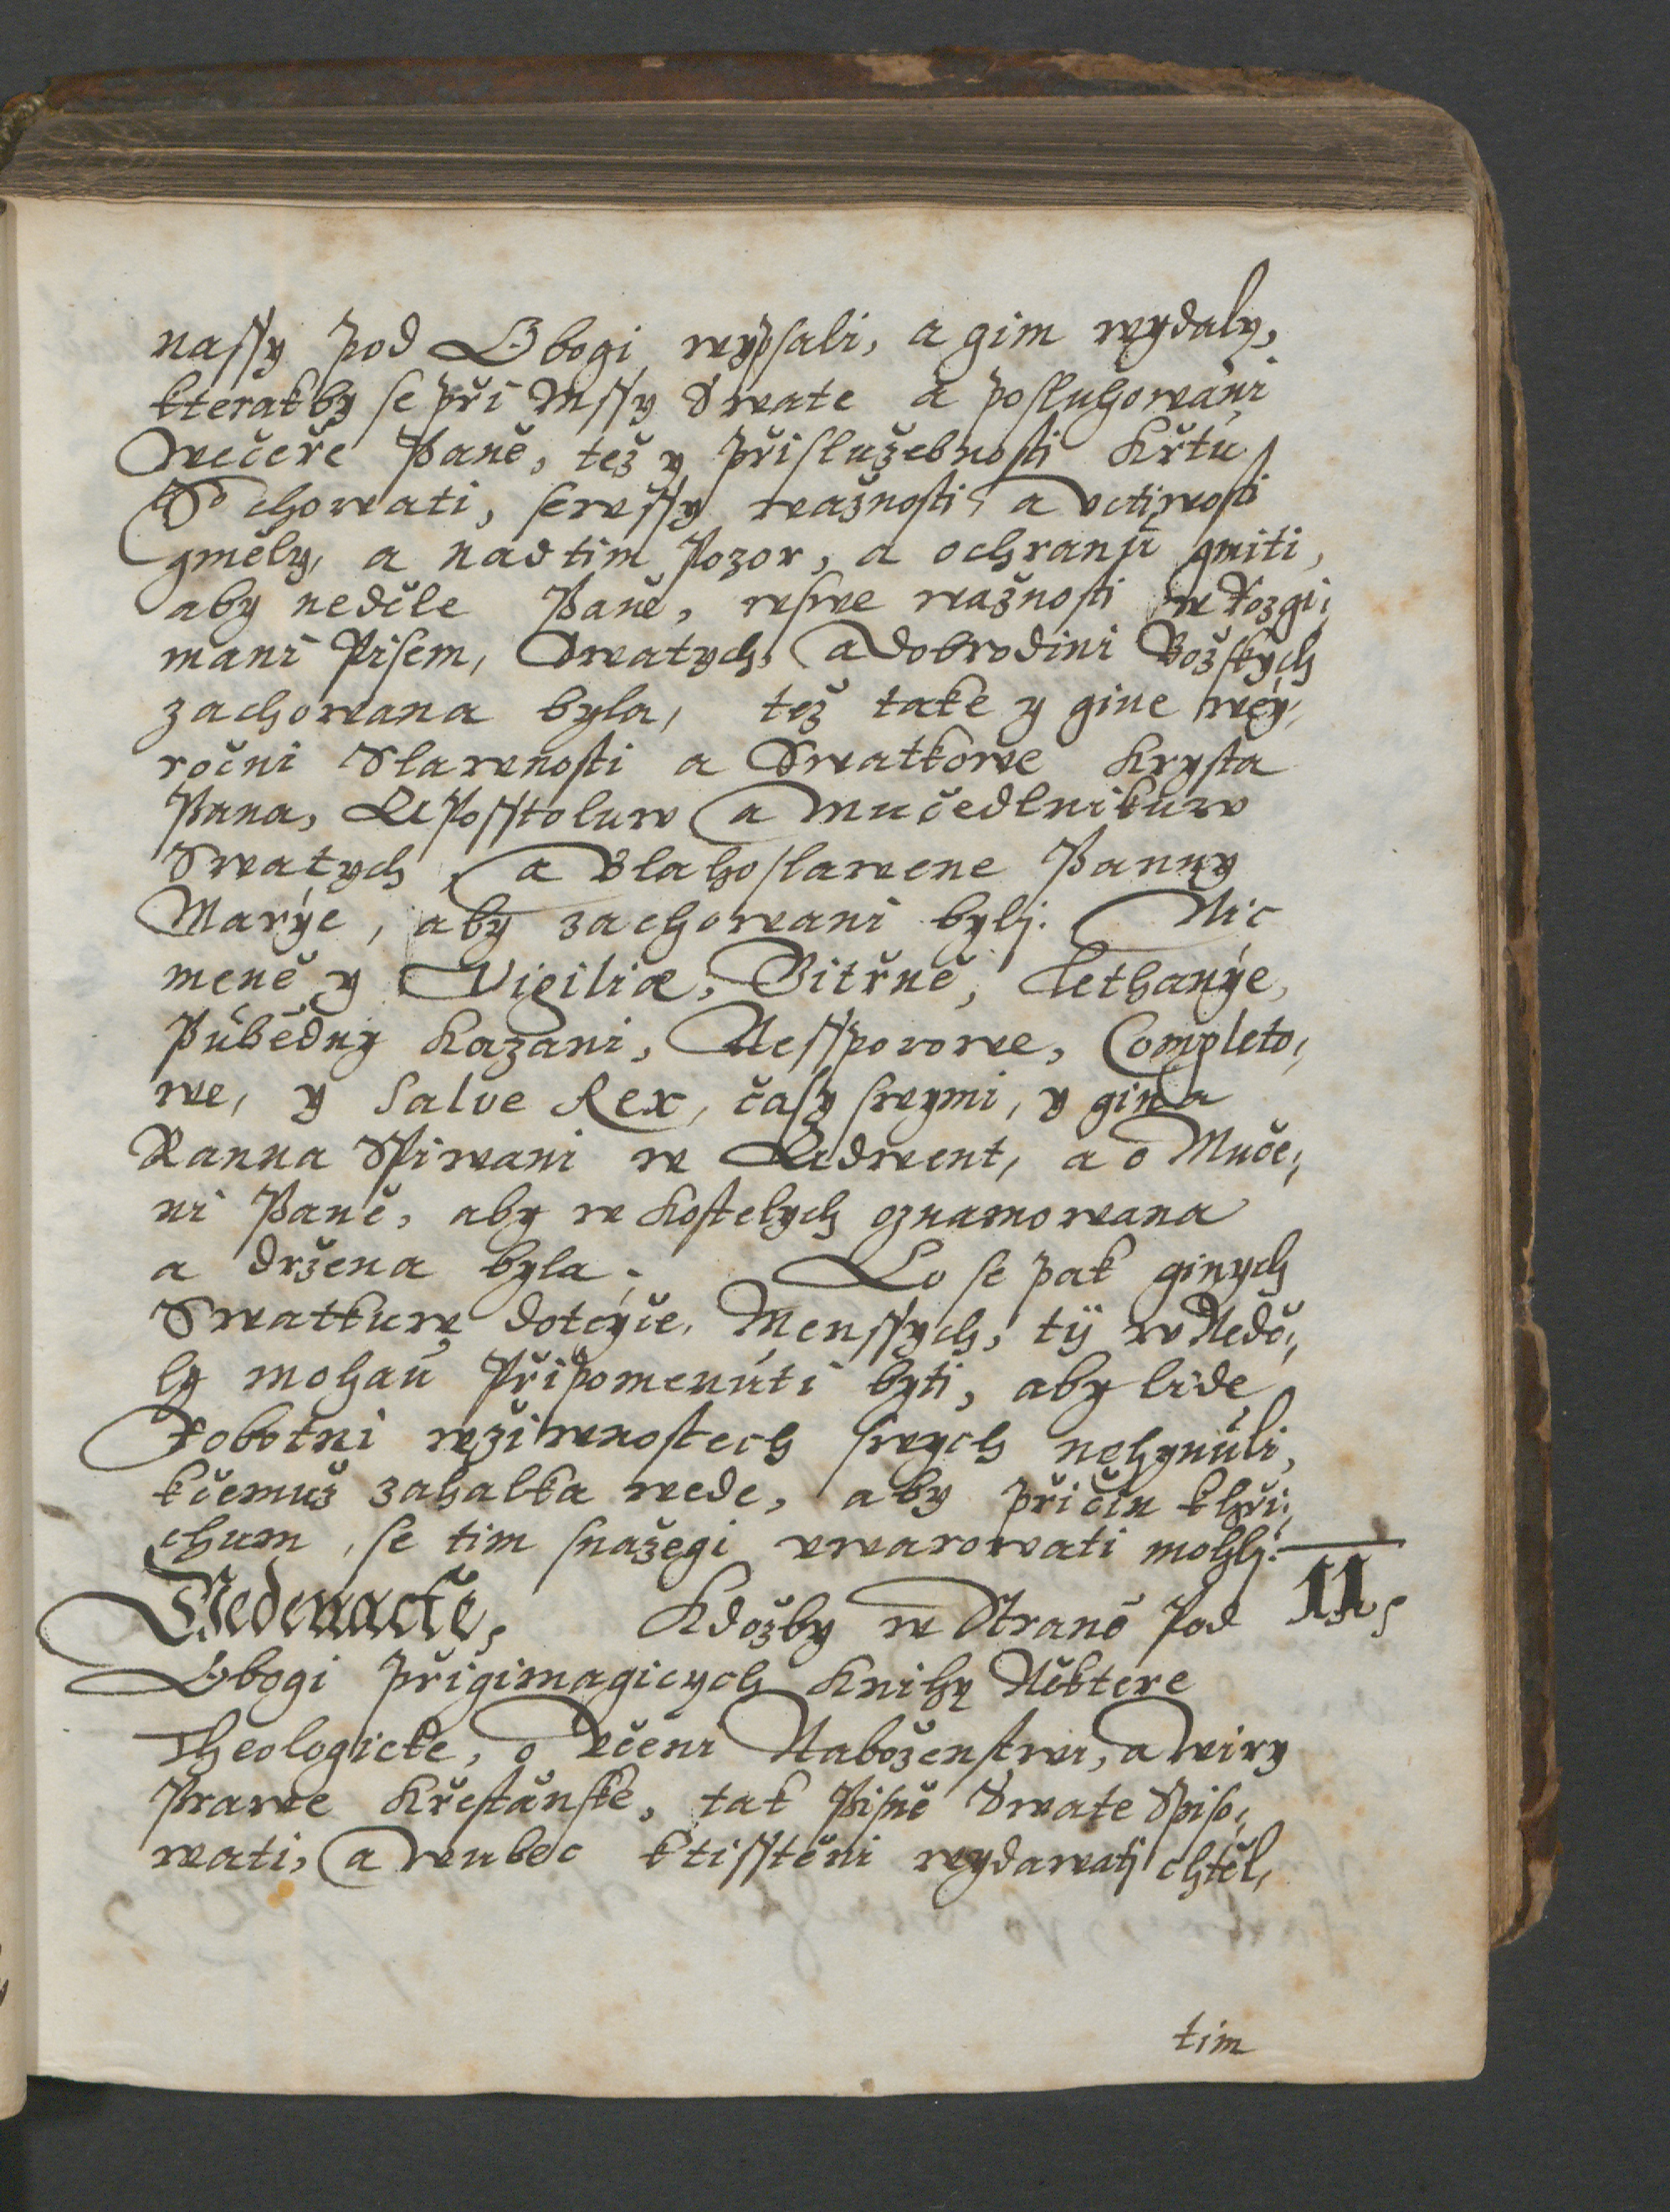 nassy pod Obogi wypsali, a gim wydaly,
kterakby se při Mssy Swate a posluhowáni
wečeře Paně, tež y přislužebnosti Křtu
Schowati, sewssy wažnosti a vctiwosti
gměly, a nadtim Pozor, a ochranu gmiti,
aby neděle Paně, wswe wažnosti w Rozgi,
mani Pisem, Swatych, a dobrodini Božskych
zachowana byla, tež take y gine wey,
ročni Slawnosti a Swatkowe Krysta
Pana, Aposstoluw a Mučedlnikuw
Swatych, a Blahoslawene Panny
Marye, aby zachowani bylj. Nic
meně y Vigiliæ, Gitřně, Lethanye,
Púbědny Kazani, Nessporowe, Completo,
we, y Salve Rex, časy swymi, y gina
Ranna Spiwani w Adwent, a o Muče,
ni Paně, aby w kostelych oznamowana
a držena byla. Co se pak ginych
Swatkuw dotcyče, Menssych, tij w Nedě,
ly mohau Připomenúti byti, aby lide
Robotni wžiwnostech swych nehynúli,
kčemuž zahalka wede, aby přičin khři,
chum, se tim snažegi vwarowati mohlj.
Gedenacte, Kdožby w Straně Pod 11,
Obogi přigimagicych Knihy Některe
Theologicke, o včeni Naboženstwi, a wiry
Prawe Křestănske, tak Pisně Swate Spiso,
wati, a wubec ktisstěni wydawatj chtěl,
tim